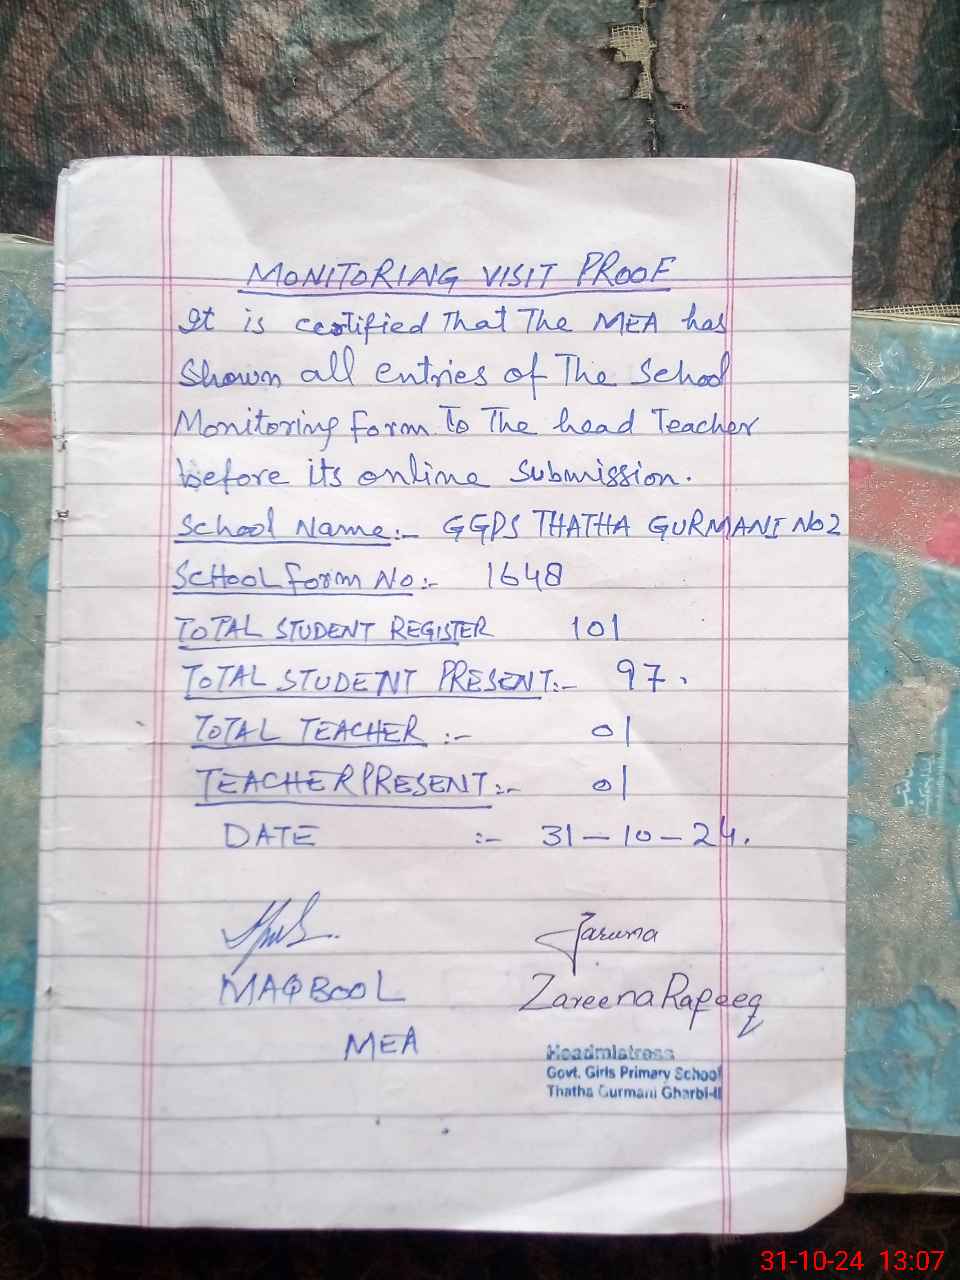 MONITORING VISIT PROOF
It is certified That The MEA has
Shown all entries of The School
Monitoring form To The head Teacher
before its online submission.
School Name:- GGPS THATHA GURMANI No 2
SCHOOL form No:- 1648
TOTAL STUDENT REGISTER 101
TOTAL STUDENT PRESENT:- 97.
TOTAL TEACHER :- 01
TEACHER PRESENT:- 01
DATE :- 31-10-24.
MAQBOOL
Zareena Rafeeq
MEA
Headmistress
Govt. Girls Primary School
Thatha Gurmani Gharbi-II
31-10-24 13:07